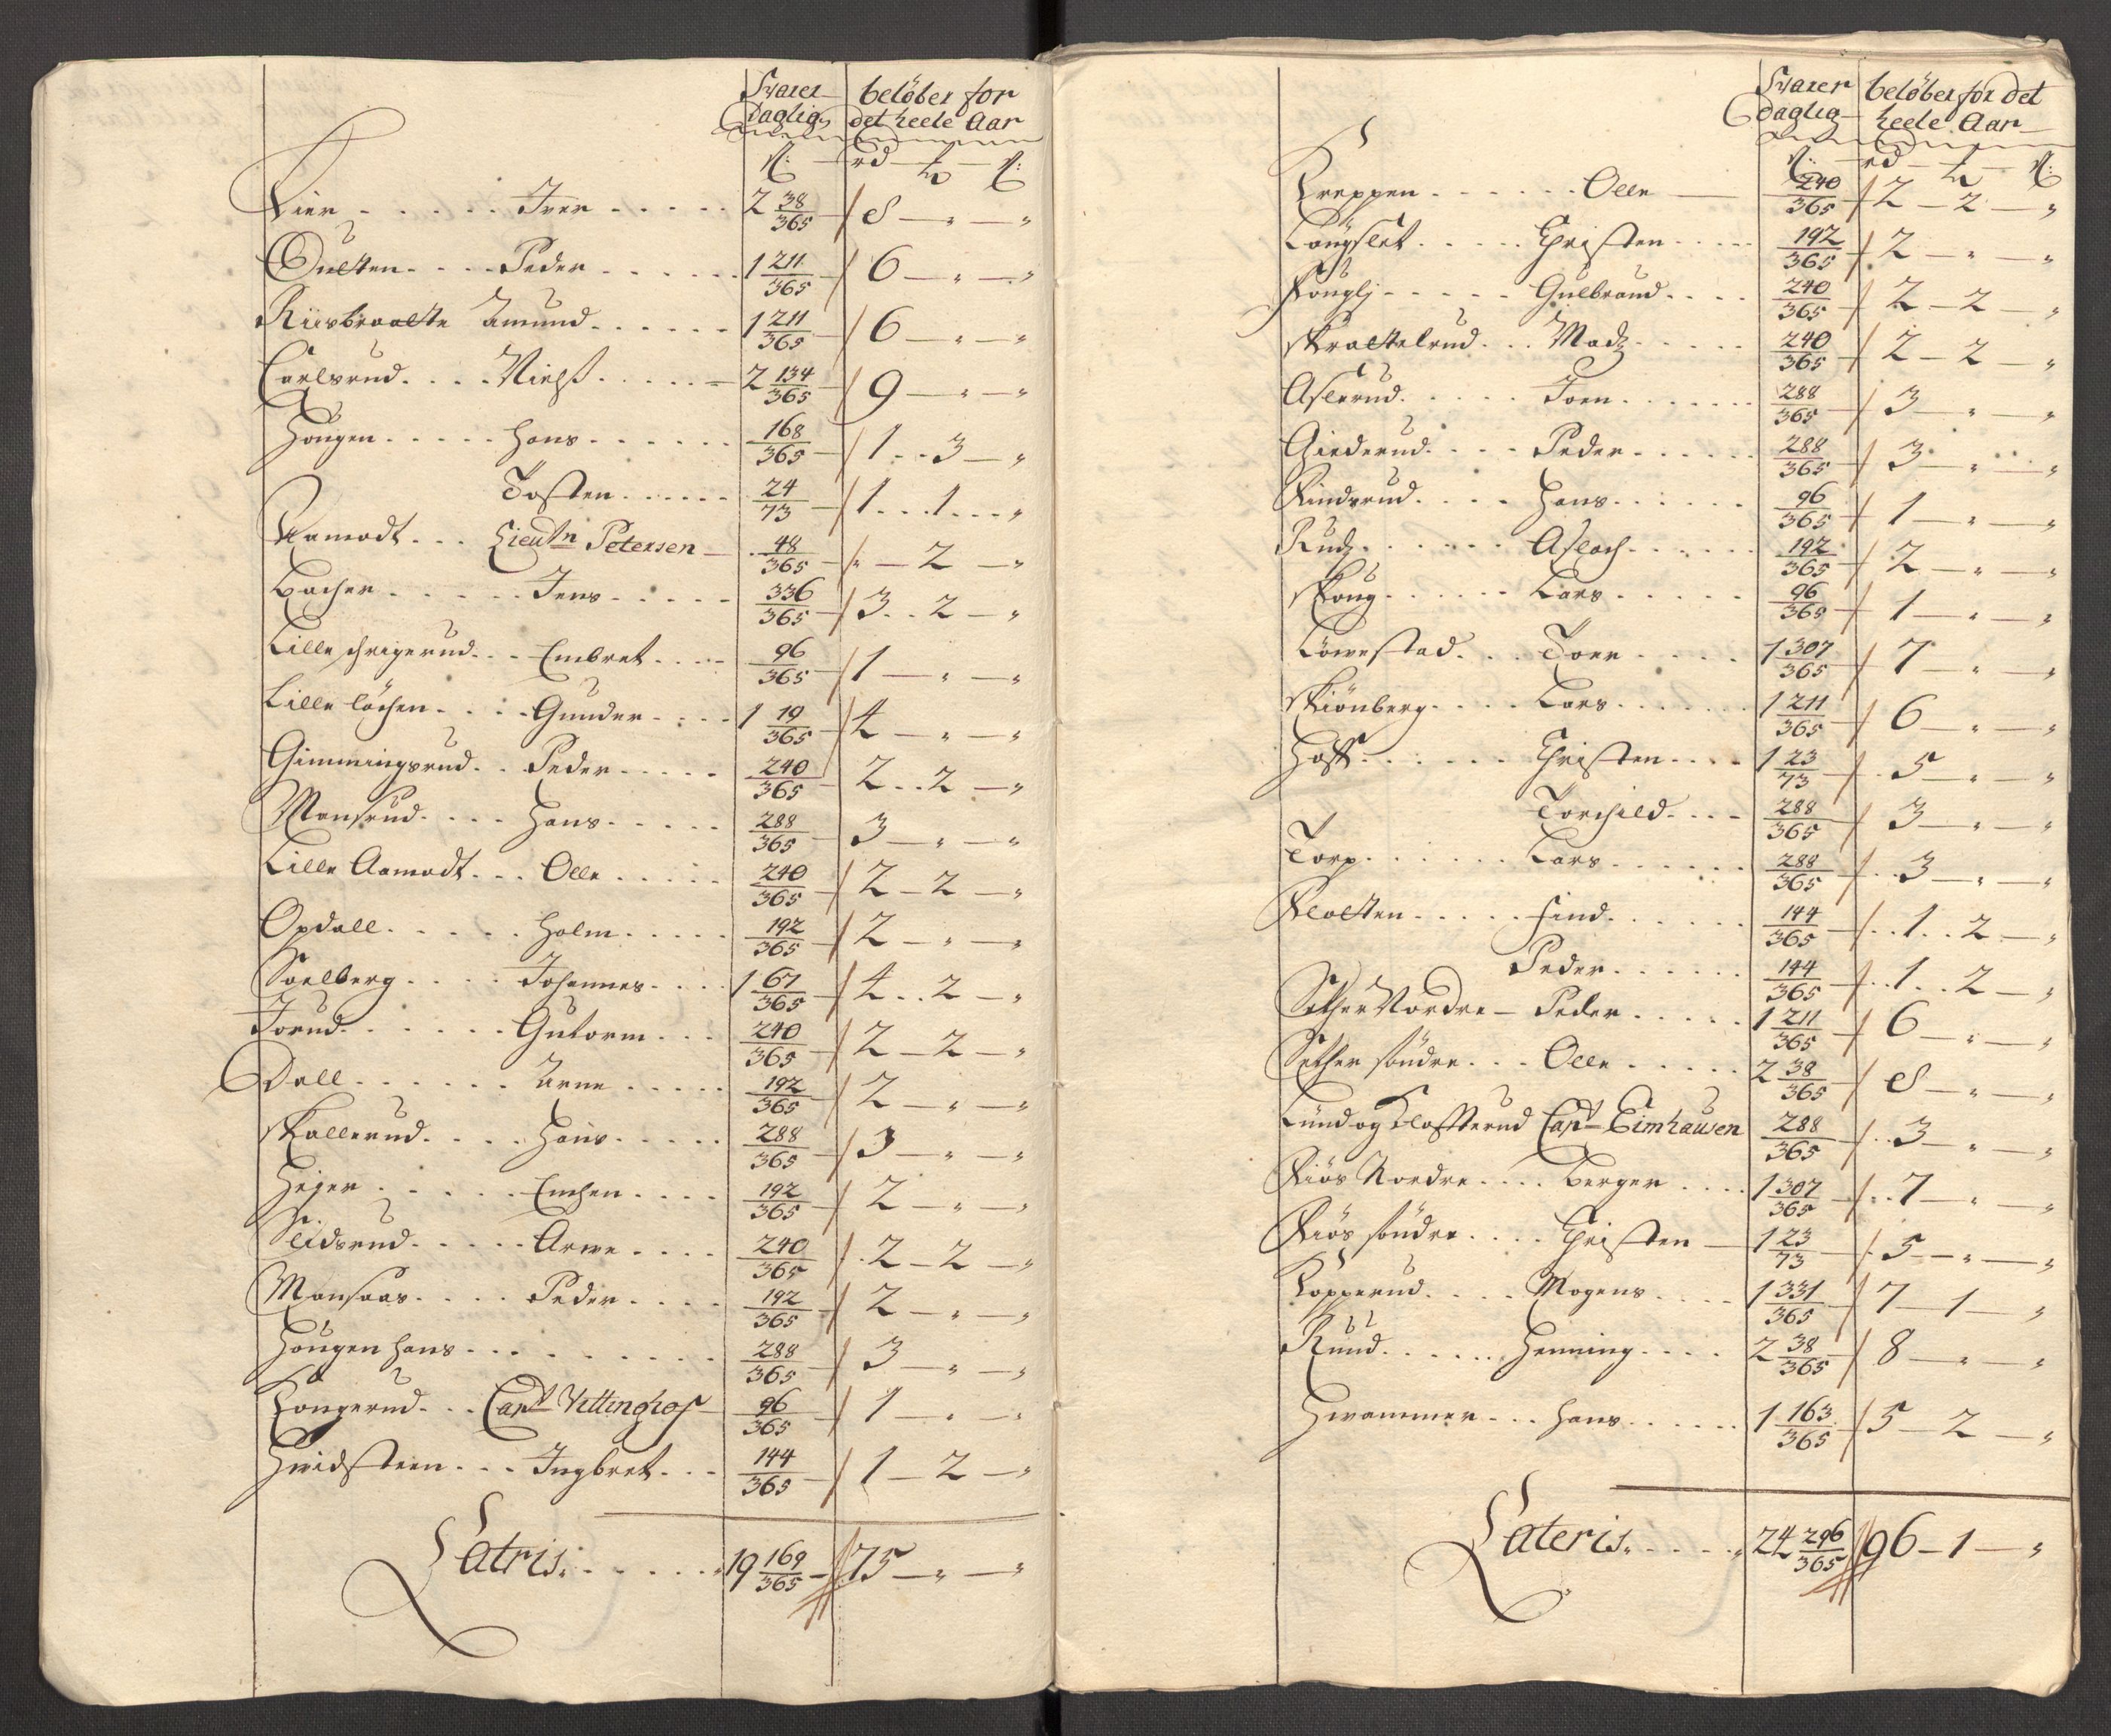 Svarer daglig beløber for det heele Aar
ß: rd ß:
Lier Iver 2 38/365 8 - " - "
Qvelten Peder 1 211/365 6 - " - "
Riisbraatte Amund 1 211/365 6 - " - "
Carlsrud Nielß 2 134/365 9 - " - "
Hougen Hans 168/365 1 - 3 - "
Tosten 24/73 1 - 1 - "
Aamodt Lieutn Petersen 48/365 " - 2 - "
Bacher Jens 336/365 3 - 2 - "
Lille Embret 96/365 1 - " - "
Lille Løchen Gunder 1 19/365 4 - " - "
Gimmingsrud Peder 240/365 2 - 2 - "
Monsrud Hans 288/365 3 - " - "
Lille Aamodt Olle 240/365 2 - 2 - "
Opdall Holm 192/365 2 - " - "
Soelberg Johannes 1 67/365 4 - 2 - "
Jorud Gutorm 240/365 2 - 2 - "
Dall Arne 192/365 2 - " - "
Skallerud Hans 288/365 3 - " - "
Hejer 192/365 2 - " - "
Slidsrud Arwe 240/365 2 - 2 - "
Monsaas Peder 192/365 2 - " - "
Hougen Hans 288/365 3 - " - "
Kongerud Capt Vittinghof 96/365 1 - " - "
Hvidsteen Ingbret 144/365 1 - 2 - "
Latris 19 169/365 75 - " - "
Svarer daglig beløber for det heele Aar
ß: rd ß:
Kreppen Olle 240/365 2 - 2 - "
Langslet Christen 192/365 2 - " - "
Fouglj Gulbrand 240/365 2 - 2 - "
Skrattelrud Madz 240/365 2 - 2 - "
Aslerud Joen 288/365 3 - " - "
Giederud Peder 288/365 3 - " - "
Rindsrud Hans 96/365 1 - " - "
Rud Aslach 192/365 2 - " - "
Skoug Lars 96/365 1 - " - "
Løwestad Toer 1 307/365 7 - " - "
Skiønberg Lars 1 211/365 6 - " - "
Hoff Christen 1 23/73 5 - " - "
Torchild 288/365 3 - " - "
Torp Lars 288/365 3 - " - "
Klolten Find 144/365 1 - 2 - "
Peder 144/365 1 - 2 - "
Sether Nordre Peder 1 211/365 6 - " - "
Sether søndre Olle 2 38/365 8 - " - "
Lund og Klosterud Capt Eimhausen 288/365 3 - " - "
Kiøs Nordre Berger 1 307/365 7 - " - "
Kiøs søndre Christen 1 23/73 5 - " - "
Kopperud Mogens 1 331/365 7 - 1 - "
Ruud Henning 2 38/365 8 - " - "
Hwammer Hans 1 163/365 5 - 2 - "
Lateris 24 296/365 96 - 1 - "